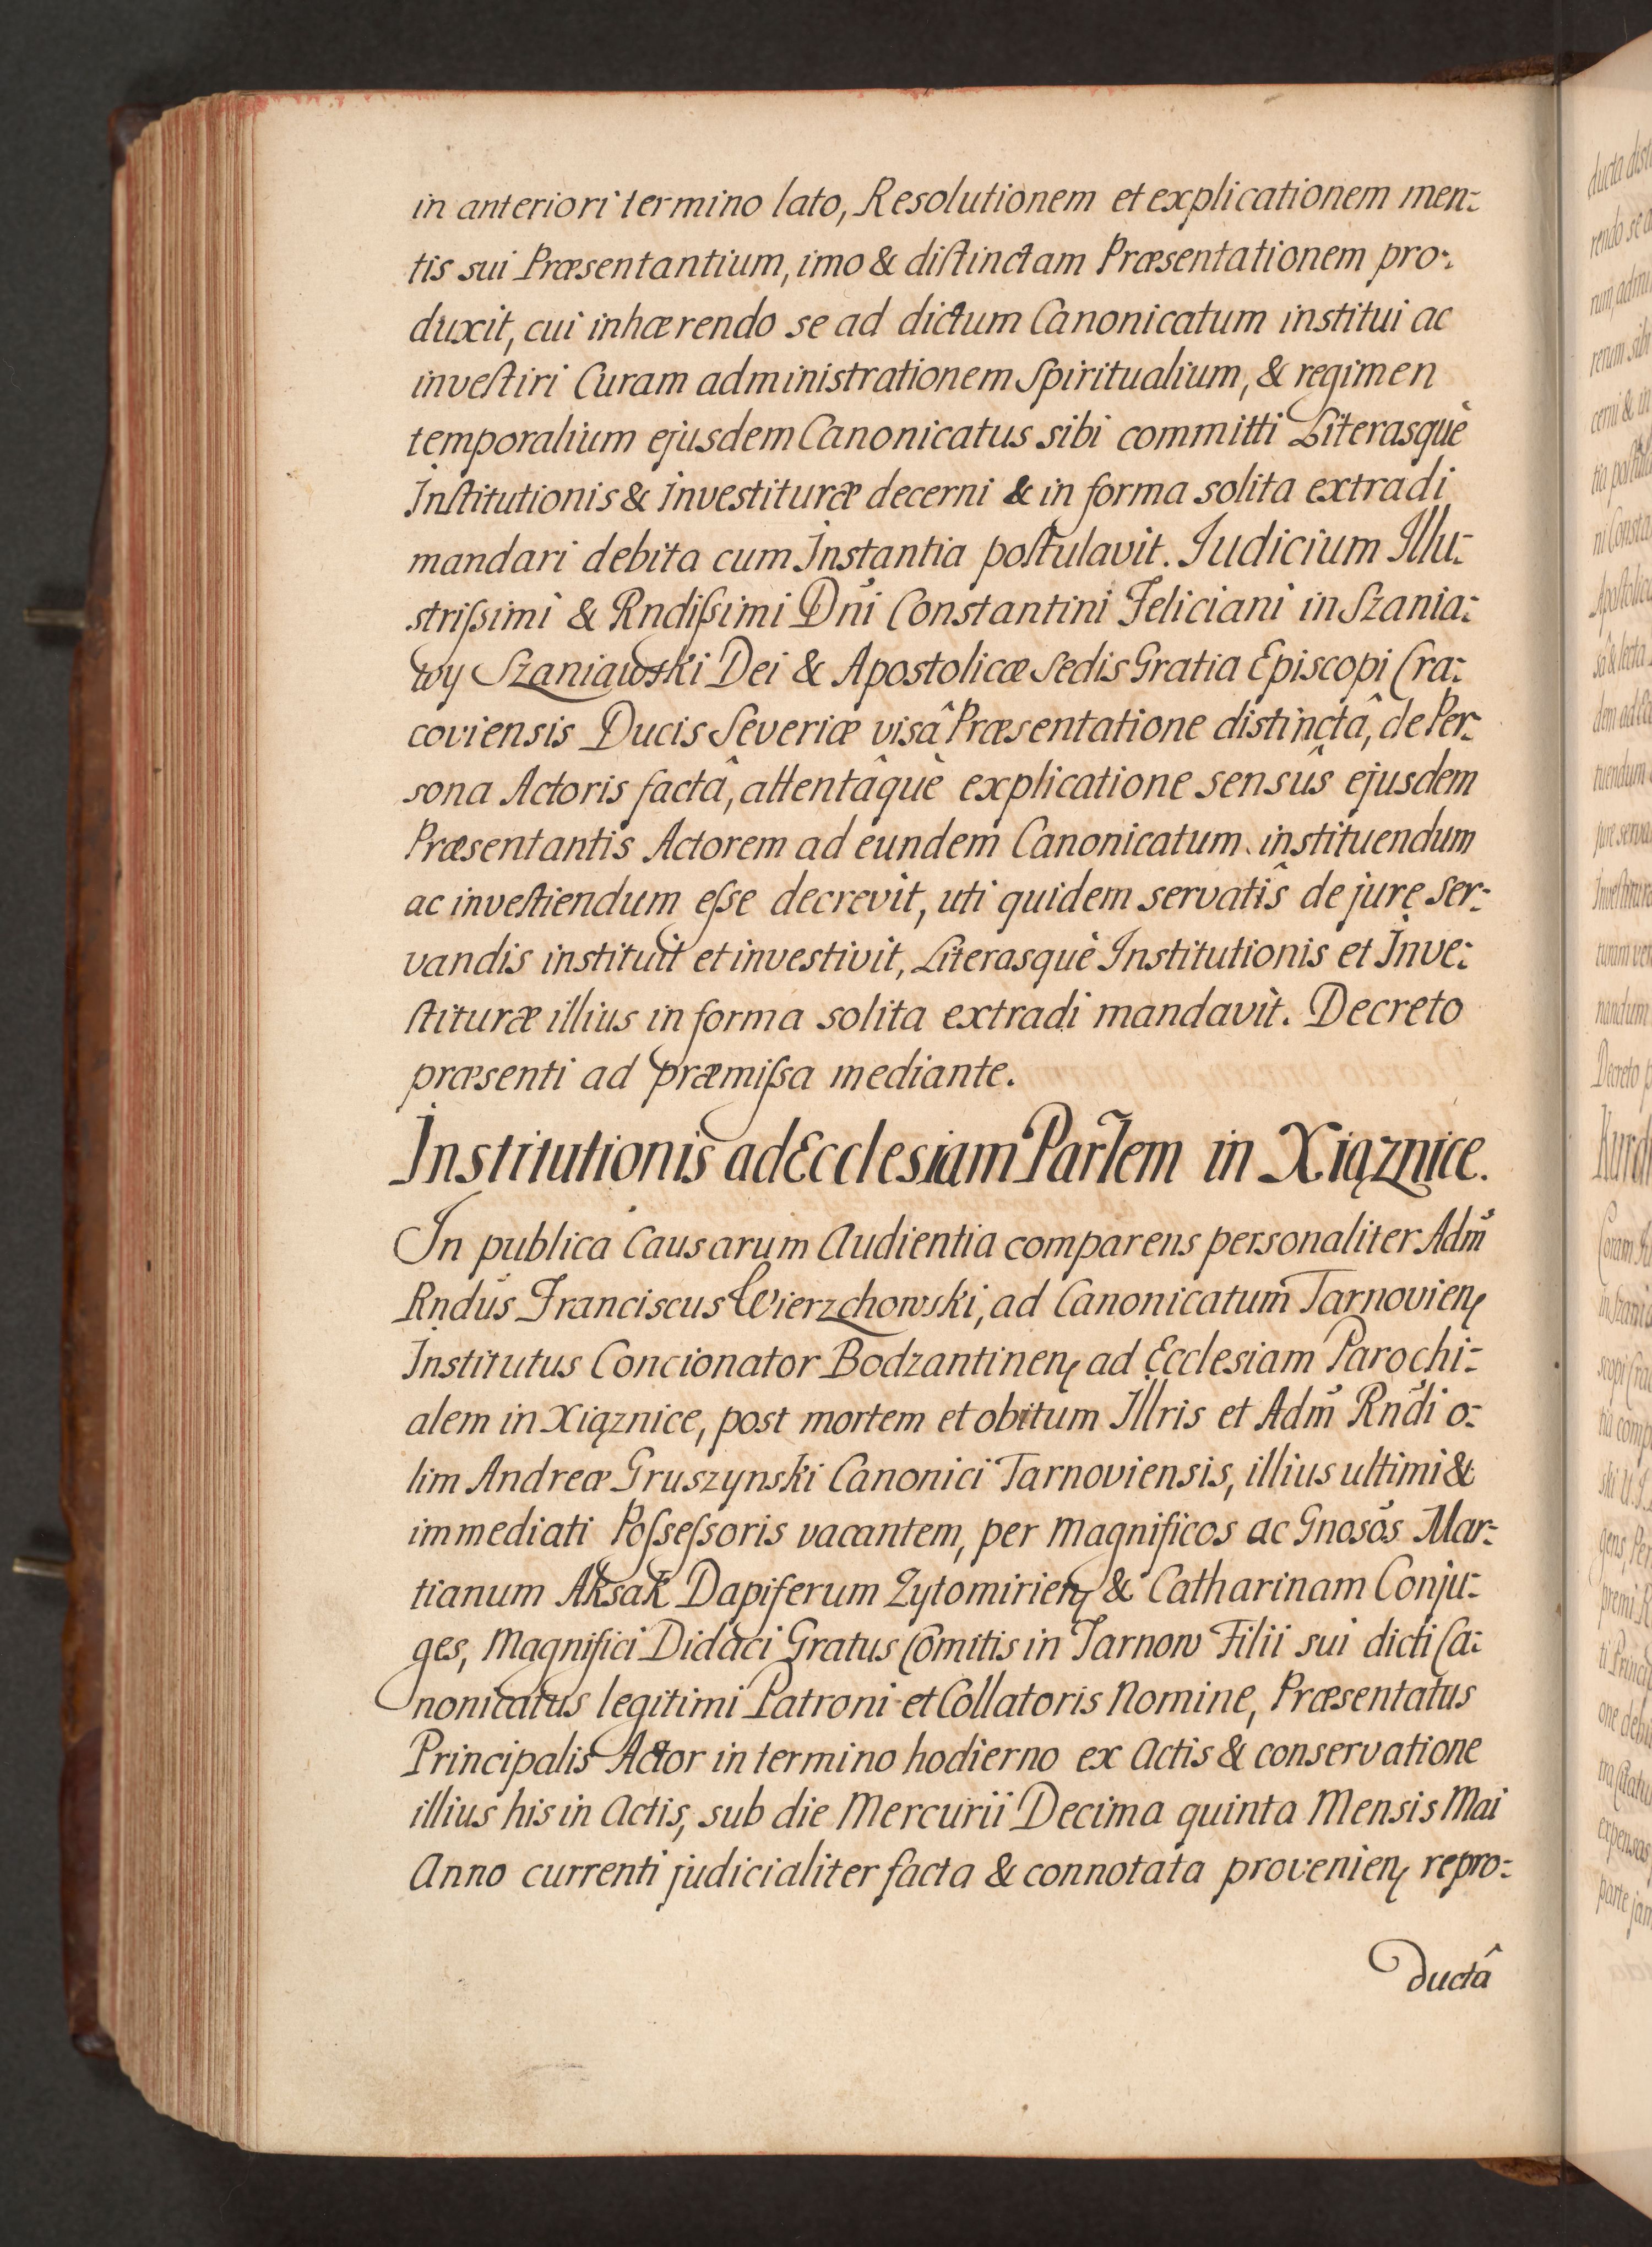 in anteriori termino lato, Resolutionem et explicationem men:
tis sui Præsentantium, imo & distinctam Præsentationem pro:
duxit, cui inhærendo se ad dictum Canonicatum institui ac
investiri Curam administrationem Spiritualium, & regimen
temporalium ejusdem Canonicatus sibi committi Literasquè
Institutionis & Investituræ decerni & in forma solita extradi
mandari debita cum Instantia postulavit. Iudicium Illu:
strißimi & Rndißimi Dńi Constantini Feliciani in Szania:
wy Szaniawski Dei & Apostolicæ Sedis Gratia Episcopi Cra:
coviensis Ducis Severiæ visâ Præsentatione distinctâ, de Per:
sona Actoris factâ, attentâquè explicatione sensûs ejusdem
Præsentantis Actorem ad eundem Canonicatum instituendum
ac investiendum eße decrevit, uti quidem servatîs de jure ser:
vandis instituit et investivit, Literasquè Institutionis et Inve:
stituræ illius in forma solita extradi mandavit. Decreto
præsenti ad præmißa mediante.
Institutionis ad Ecclesiam Parlem in Xiąznice.
In publica Causarum Audientia comparens personaliter Adm̃
Rndús Franciscus Wierzchowski, ad Canonicatum Tarnovien̨
Institutus Concionator Bodzantinen̨ ad Ecclesiam Parochi:
alem in Xiąznice, post mortem et obitum Illris et Adm̃ Rndi o:
lim Andreæ Gruszynski Canonici Tarnoviensis, illius ultimi &
immediati Poßeßoris vacantem, per Magnificos ac Gnosós Mar:
tianum Aksak Dapiferum Zytomirien̨ & Catharinam Conju:
ges, Magnifici Didaci Gratus Comitis in Tarnow Filii sui dicti Ca:
nonicatus legitimi Patroni et Collatoris Nomine, Præsentatus
Principalis Actor in termino hodierno ex Actis & conservatione
illius his in Actis, sub die Mercurii Decima quinta Mensis Mai
Anno currenti judicialiter facta & connotata provenien̨ repro:
ductâ